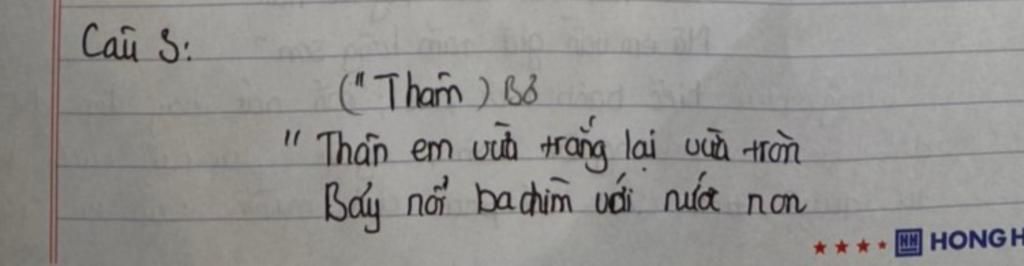 Câu 5:
("Thâm) Bỏ
" Thân em vừa trắng lại vừa tròn
Bảy nổi ba chìm với nước non
HONG H